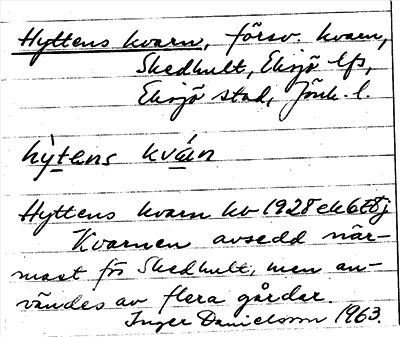 Hyttens kvarn, försv. kvarn,
Skedhult, Eksjö lfs,
Eksjö stad, Jönk. l.
hỳtens kván
Hyttens kvarn kv 1928 ek 6t8j
Kvarnen avsedd när-
mast för Skedhult, men an-
vändes av flera gårdar.
Inger Danielsson 1963.